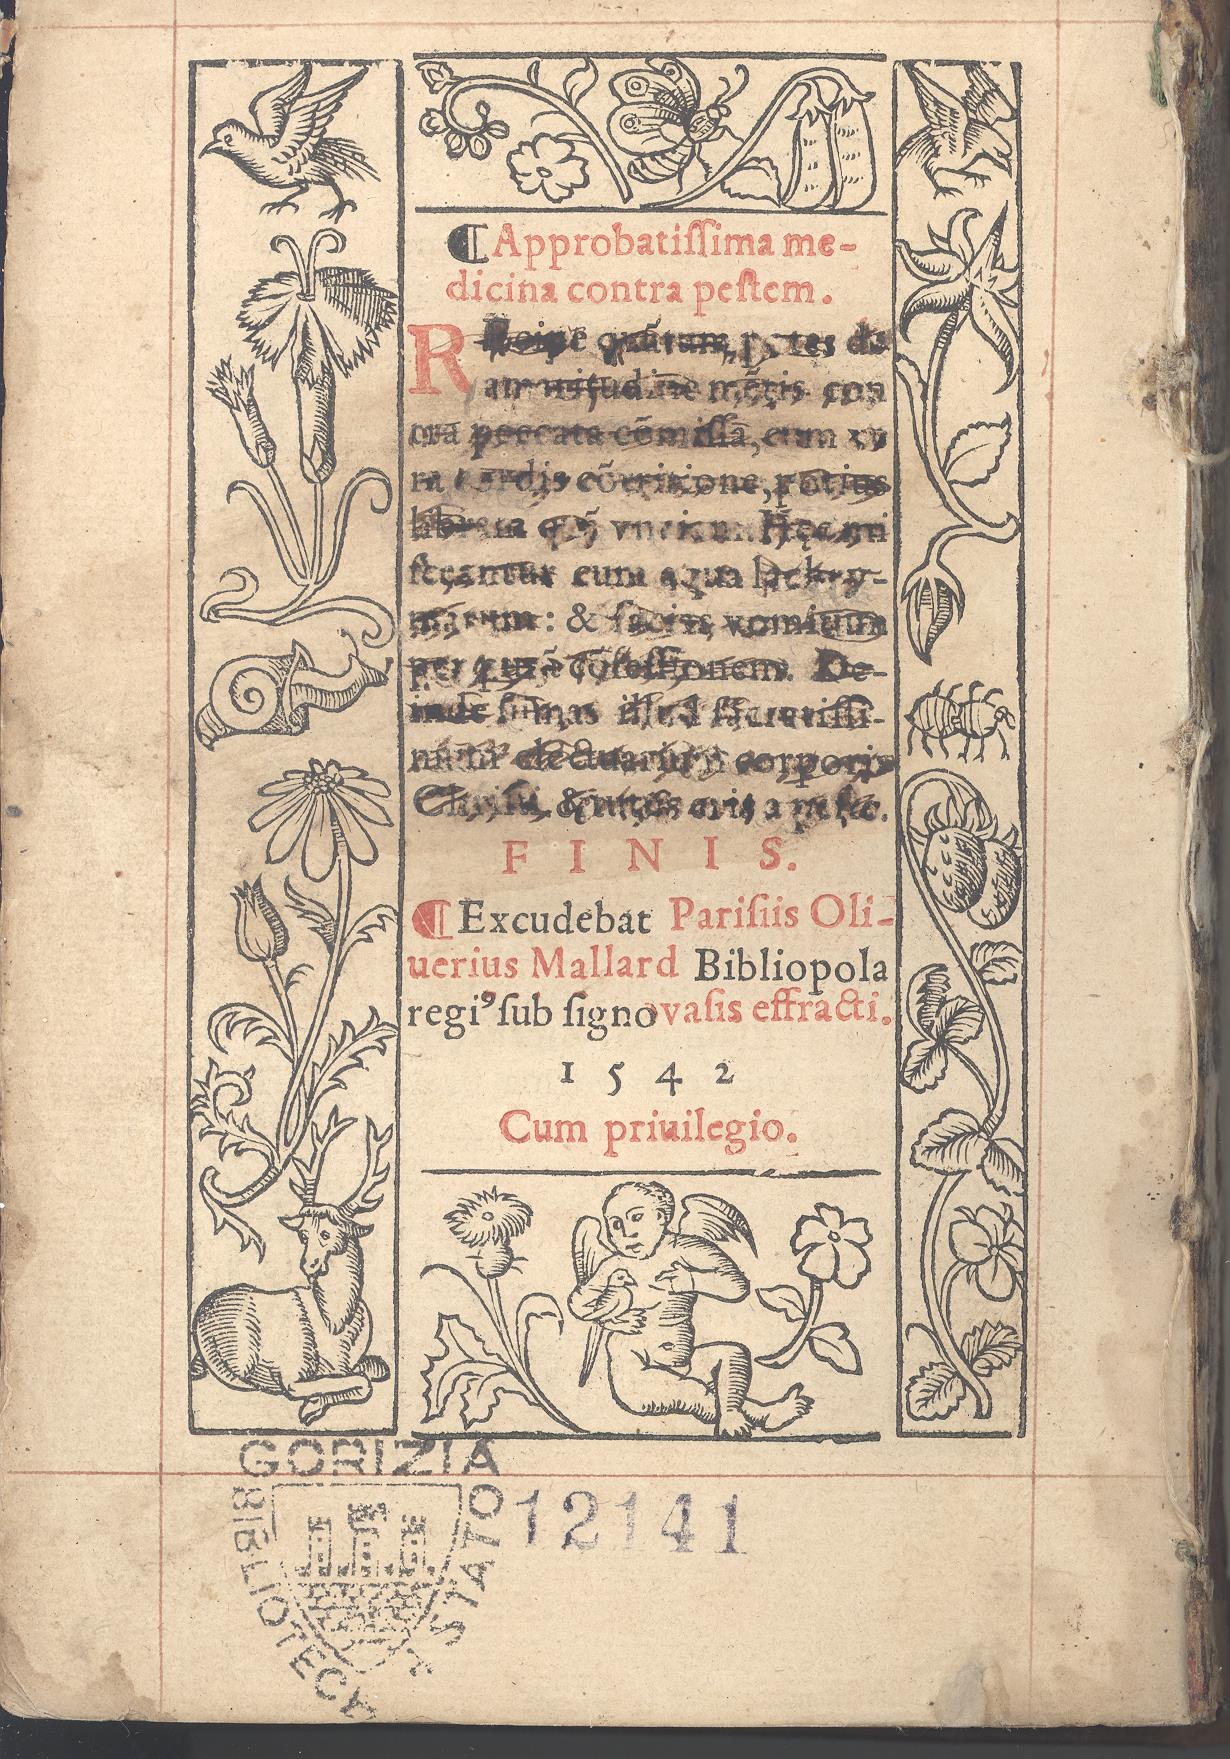 ¶ Approbatiſſima me-
dicina contra peſtem.
Recipe quãtum potes de
amaritudine mẽtis con
tra peccata cõmiſſa, cum ve
ra cordis cõtritione, potius
libram quã
ſceantur cum aqua lachry-
marum: & facias vomitum
per purã cõfeſſionem. De-
inde ſumas illud ſacratiſſi-
mum electuarium corporis
Chriſti, & tutus eris a peſte.
F I N I S.
¶ Excudebat Pariſiis Oli-
uerius Mallard Bibliopola
regiꝰ ſub ſigno vaſis effracti.
1 5 4 2
Cum priuilegio.
GORIZIA
BIBLIOTECA
STATO
12141